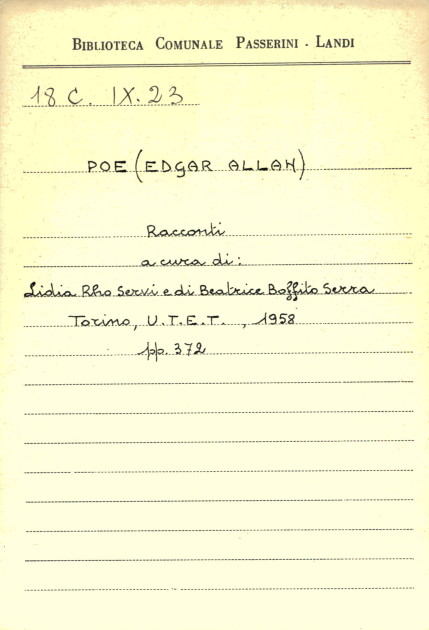 BIBLIOTECA COMUNALE PASSERINI - LANDI
18 C. IX. 23
POE (EDGAR ALLAN)
Racconti
a cura di:
Lidia Rho Servi e di Beatrice Boffito Serra
Torino, U.T.E.T., 1958
pp. 372